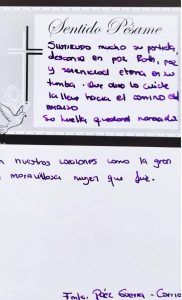 Sentido Pésame
Sentimos mucho su partida,
descansa en paz Ruth, paz
y serenidad eterna en su
tumba. Que Dios la cuide
la lleve hacia el camino del
paraiso
Su huella quedará marcada
en nuestros corazones como la gran
y maravillosa mujer que fue.
Fmla. Páez Guerra -